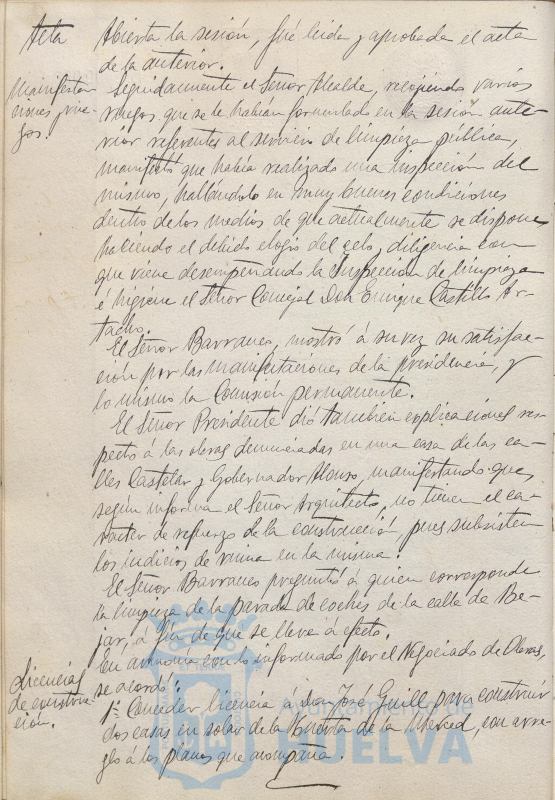 Acta
Abierta la sesión, fué leida y aprobada el acta
de la anterior.
Manifestaciones, ruegos.
Seguidamente el Señor Alcalde, recogiendo varios
ruegos que se le habían formulado en la sesión ante-
rior referentes al servicio de limpieza pública,
manifestó que había realizado una inspección del
mismo, hallándolo en muy buenas condiciones
dentro de los medios de que actualmente se dispone
haciendo el debido elogio del celo y diligencia con
que viene desempeñando la Inspección de limpieza
é higiene el Señor Concejal Don Enrique Castillo Ar-
tacho.
El Señor Barranco, mostró á su vez su satisfac-
ción por las manifestaciones de la presidencia, y
lo mismo la Comisión permanente.
El Señor Presidente dió también explicaciones res-
pecto á las obras denunciadas en una casa de las ca-
lles Castelar y Gobernador Alonso, manifestando que,
según informa el Señor Arquitecto, no tienen el ca-
racter de refuerzo de la construcción, pues subsisten
los indicios de ruina en la misma.
El Señor Barranco preguntó á quien corresponde
la limpieza de la parada de coches de la calle de Be-
jar, á fin de que se lleve á efecto.
Licencias
de construc-
ción.
En armonía con lo informado por el Negociado de Obras,
se acordó:
1º Conceder licencia á don José Guill para construir
dos casas en solar de la Huerta de la Merced, con arre-
glo á los planos que acompaña.
Ayuntamiento de
HUELVA